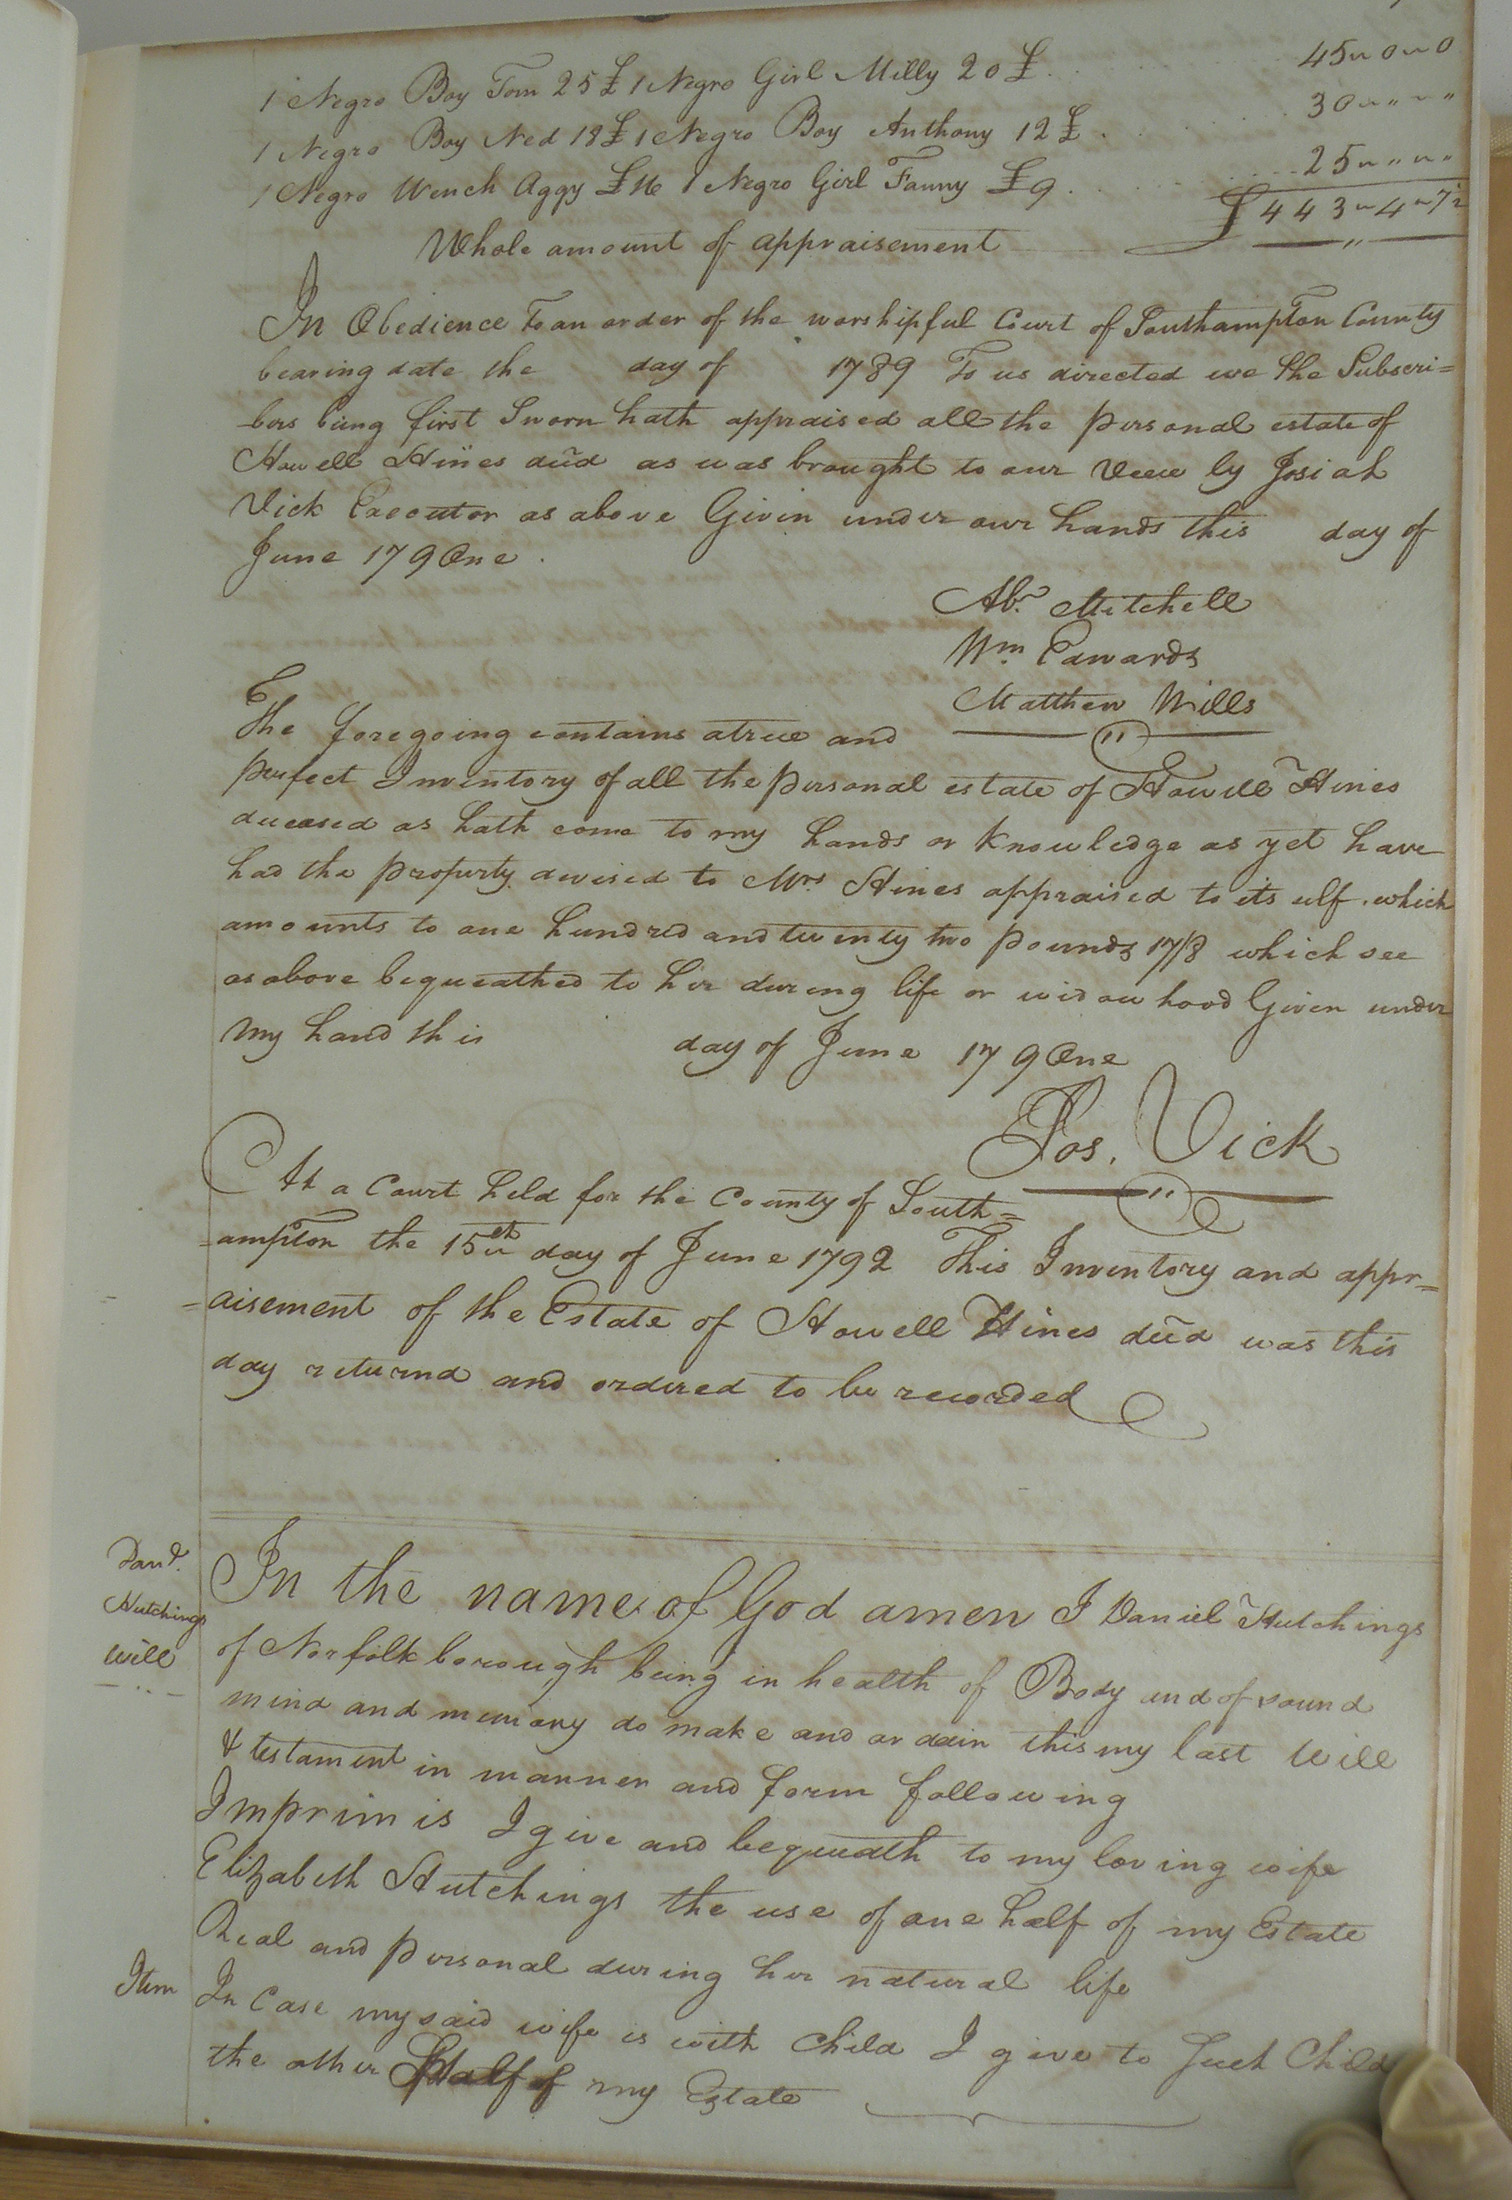 1 Negro Boy Tom 25£ 1 Negro Girl Milly 20£ 45 " 0 " 0
1 Negro Boy Ned 18£ 1 Negro Boy Anthony 12£ 30 " " " "
1 Negro Wench Aggy £16 1 Negro Girl Fanny £9 25 " " " "
Whole amount of appraisement £443 " 4 " 7½
In Obedience to an order of the worshipful Court of Southampton County
bearing date the day of 1789 To us directed we the Subscri=
-bers being first Sworn hath appraised all the personal estate of
Howell Hines decd as was brought to our View by Josiah
Vick Executor as above Given under our hands this day of
June 179One.
Abr. Mitchell
Wm. Edwards
Matthew Wills
The foregoing contains a true and
perfect Inventory of all the personal estate of Howell Hines
deceased as hath come to my hands or knowledge as yet have
had the property devised to Mrs Hines appraised to its elf. which
amounts to one hundred and twenty two pounds 17/8 which see
as above bequeathed to her during life or widowhood Given under
my hand this day of June 179One
Jos. Vick
At a Court held for the County of South=
=ampton the 15th day of June 1792 This Inventory and appr=
=aisement of the Estate of Howell Hines decd was this
day returnd and ordered to be recorded
Danl.
Hutchings
will
In the name of God amen I Daniel Hutchings
of Norfolk borough being in health of Body and of sound
mind and memory do make and ordain this my last Will
& testament in manner and form following
Imprimis I give and bequeath to my loving wife
Elizabeth Hutchings the use of one half of my Estate
Real and personal during her natural life
Item In Case my said wife is with Child I give to Such Child
the other Half of my Estate